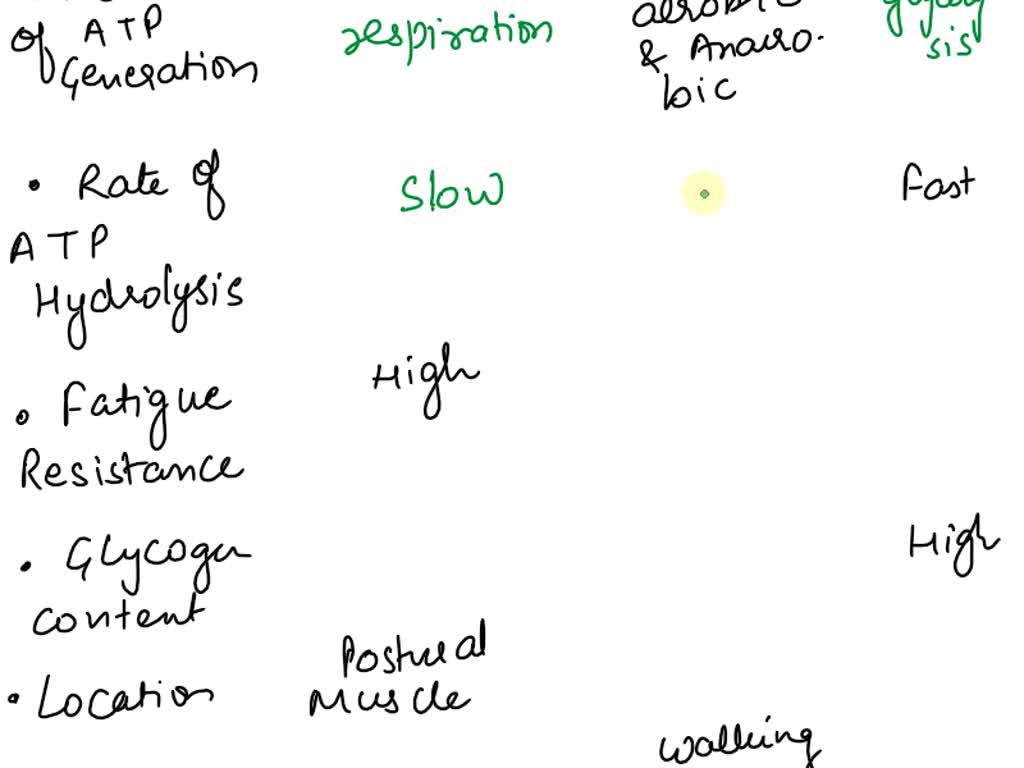 of ATP
Generation
respiration
& Anaero.
bic
sis
• Rate of
ATP
Hydrolysis
Slow
Fast
• Fatigue
Resistance
High
• Glycogen
content
High
• Location
Postural
Muscle
Walking